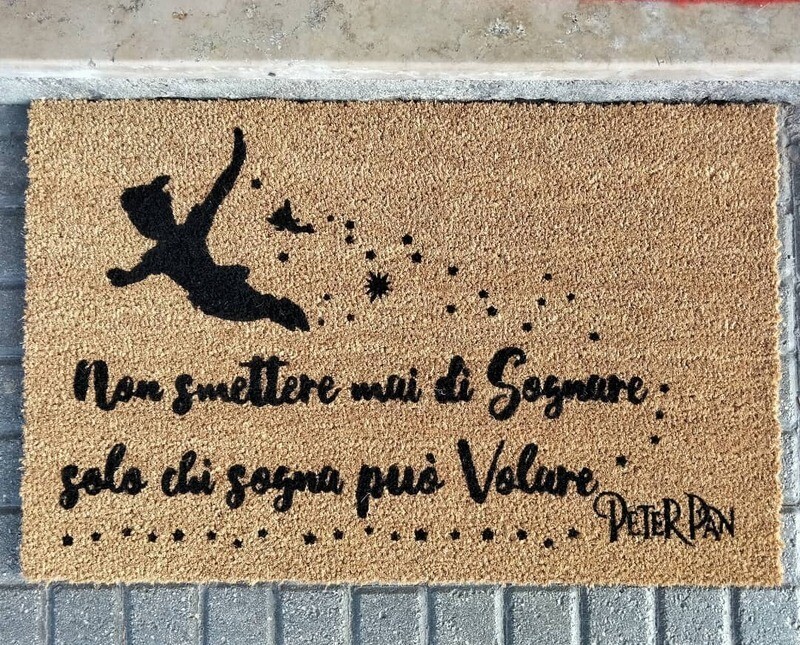 Non smettere mai di Sognare
solo chi sogna può Volare
PETER PAN